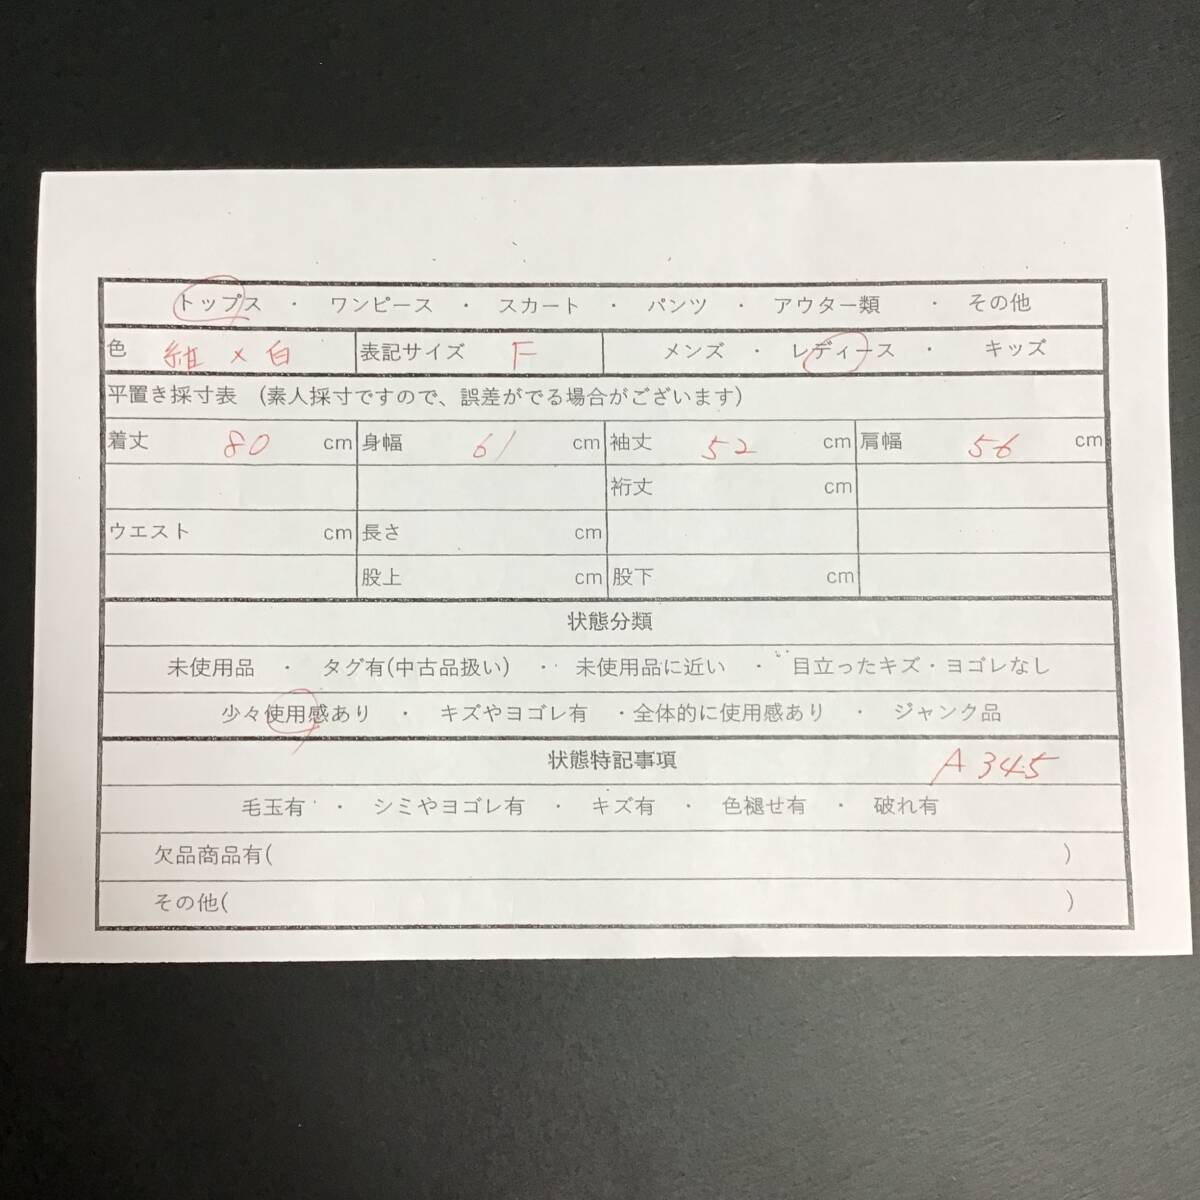 トップス ・ ワンピース ・ スカート ・ パンツ ・ アウター類 ・ その他
色 紺×白 表記サイズ F メンズ ・ レディース ・ キッズ
平置き採寸表 (素人採寸ですので、誤差がでる場合がございます)
着丈 80 cm 身幅 61 cm 袖丈 52 cm 肩幅 56 cm
裄丈 cm
ウエスト cm 長さ cm
股上 cm 股下 cm
状態分類
未使用品 ・ タグ有(中古品扱い) ・ 未使用品に近い ・ 目立ったキズ・ヨゴレなし
少々使用感あり ・ キズやヨゴレ有 ・全体的に使用感あり ・ ジャンク品
状態特記事項 A345
毛玉有 ・ シミやヨゴレ有 ・ キズ有 ・ 色褪せ有 ・ 破れ有
欠品商品有( )
その他( )